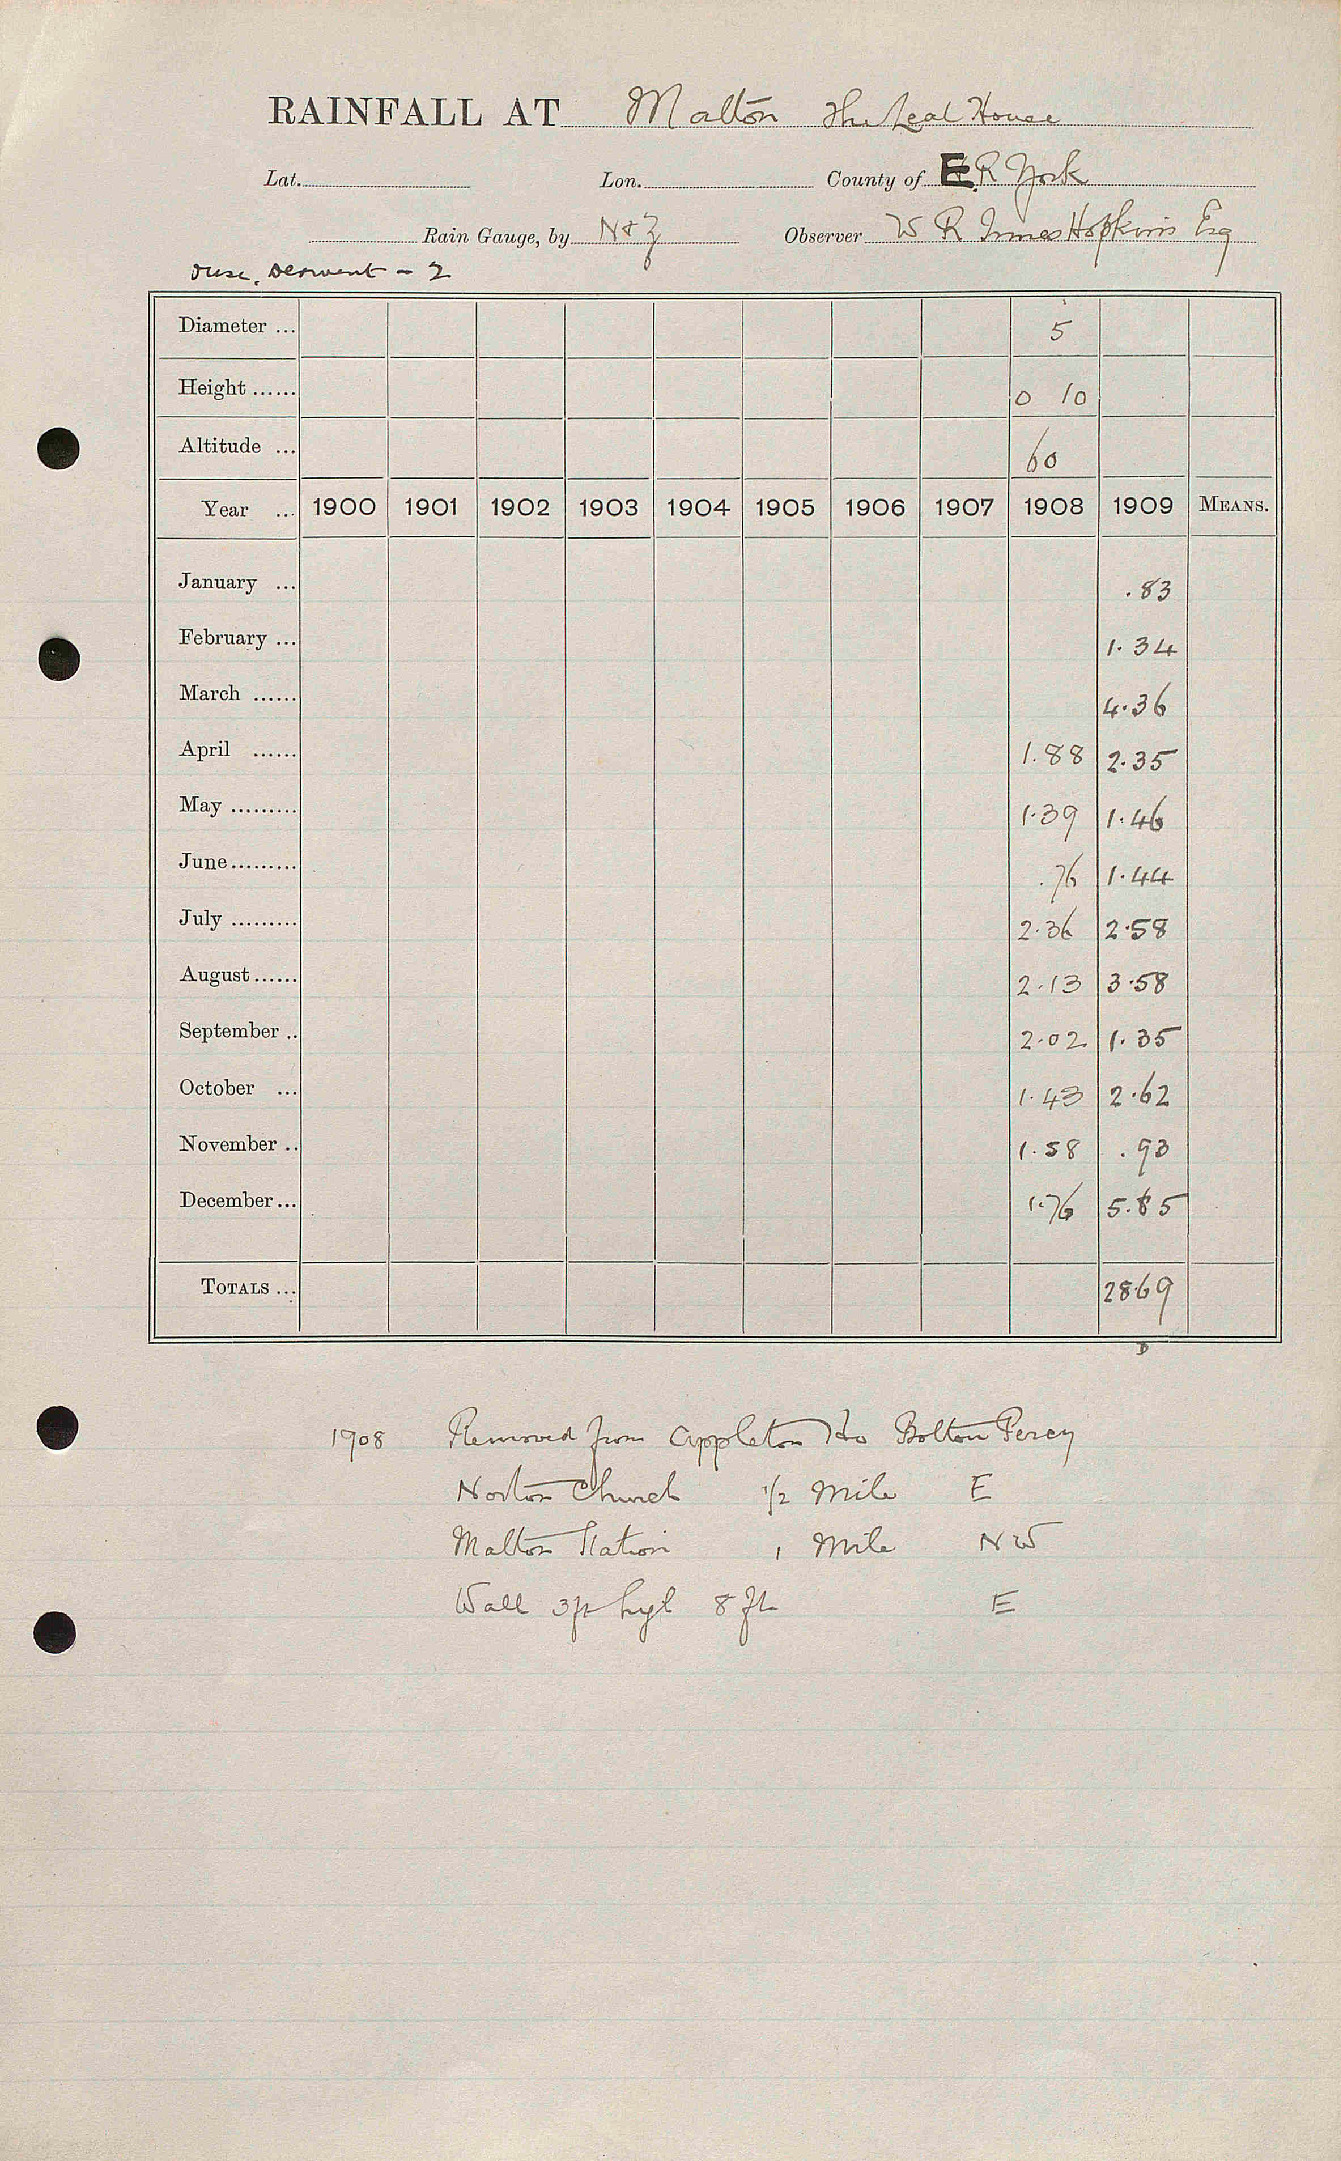 RAINFALL AT Malton The Leat House
Lat. Lon. County of E R York
Rain Gauge, by N&Z Observer W R Innes Hopkins Esq
Ouse, Derwent - 2
Diameter ... 5
Height ...... 0 10
Altitude ... 60
Year ... 1900 1901 1902 1903 1904 1905 1906 1907 1908 1909 MEANS.
January ... .83
February ... 1.34
March ...... 4.36
April ...... 1.88 2.35
May ......... 1.39 1.46
June ......... .76 1.44
July ......... 2.36 2.58
August ...... 2.13 3.58
September .. 2.02 1.35
October ... 1.43 2.62
November .. 1.58 .93
December ... 1.76 5.85
TOTALS ... 28.69
D
1908 Removed from Appleton Ho Bolton Percy
Norton Church 1/2 Mile E
Malton Station 1 Mile NW
Wall 3ft high 8 ft E